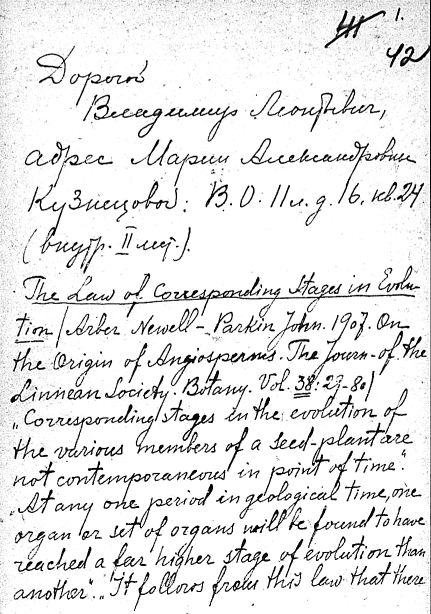 41 1.
42
Дорогой
Владимир Леонтьевич,
адрес Марии Александровны
Кузнецовой: В.О. 11 л. д. 16. кв. 24
(внутр. II лит.).
The Law of Corresponding Stages in Evolu-
tion / Arber Newell – Parkin John. 1907. On
the Origin of Angiosperms. The Journ. of the
Linnean Society. Botany. Vol. 38: 29-80/
„Corresponding stages in the evolution of
the various members of a seed-plant are
not contemporaneous in point of time".
„At any one period in geological time, one
organ or set of organs will be found to have
reached a far higher stage of evolution than
another". „It follows from this law that there